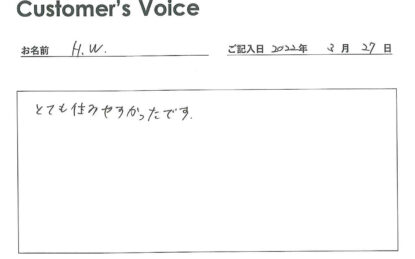 Customer's Voice
お名前 H.W. ご記入日 2022年 3月 27日
とても住みやすかったです.